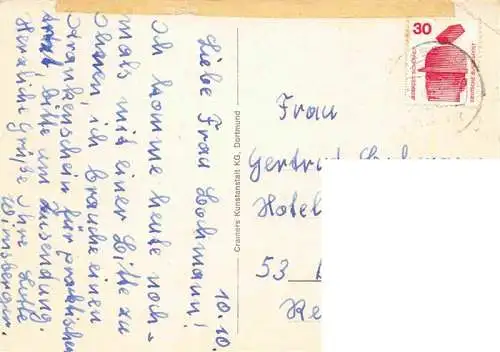 10.10.
Liebe Frau Lochmann!
Ich komme heute noch-
mals mit einer Bitte zu
Ihnen, ich brauche einen
Krankenschein für praktischen
Arzt, bitte um Zusendung.
Herzliche Grüße Ihre Lotte
Wirnsberger.
Cramers Kunstanstalt KG, Dortmund
30
JEDERZEIT SICHERHEIT
DEUTSCHE BUNDESPOST
Frau
Gertrud
Hotel
53